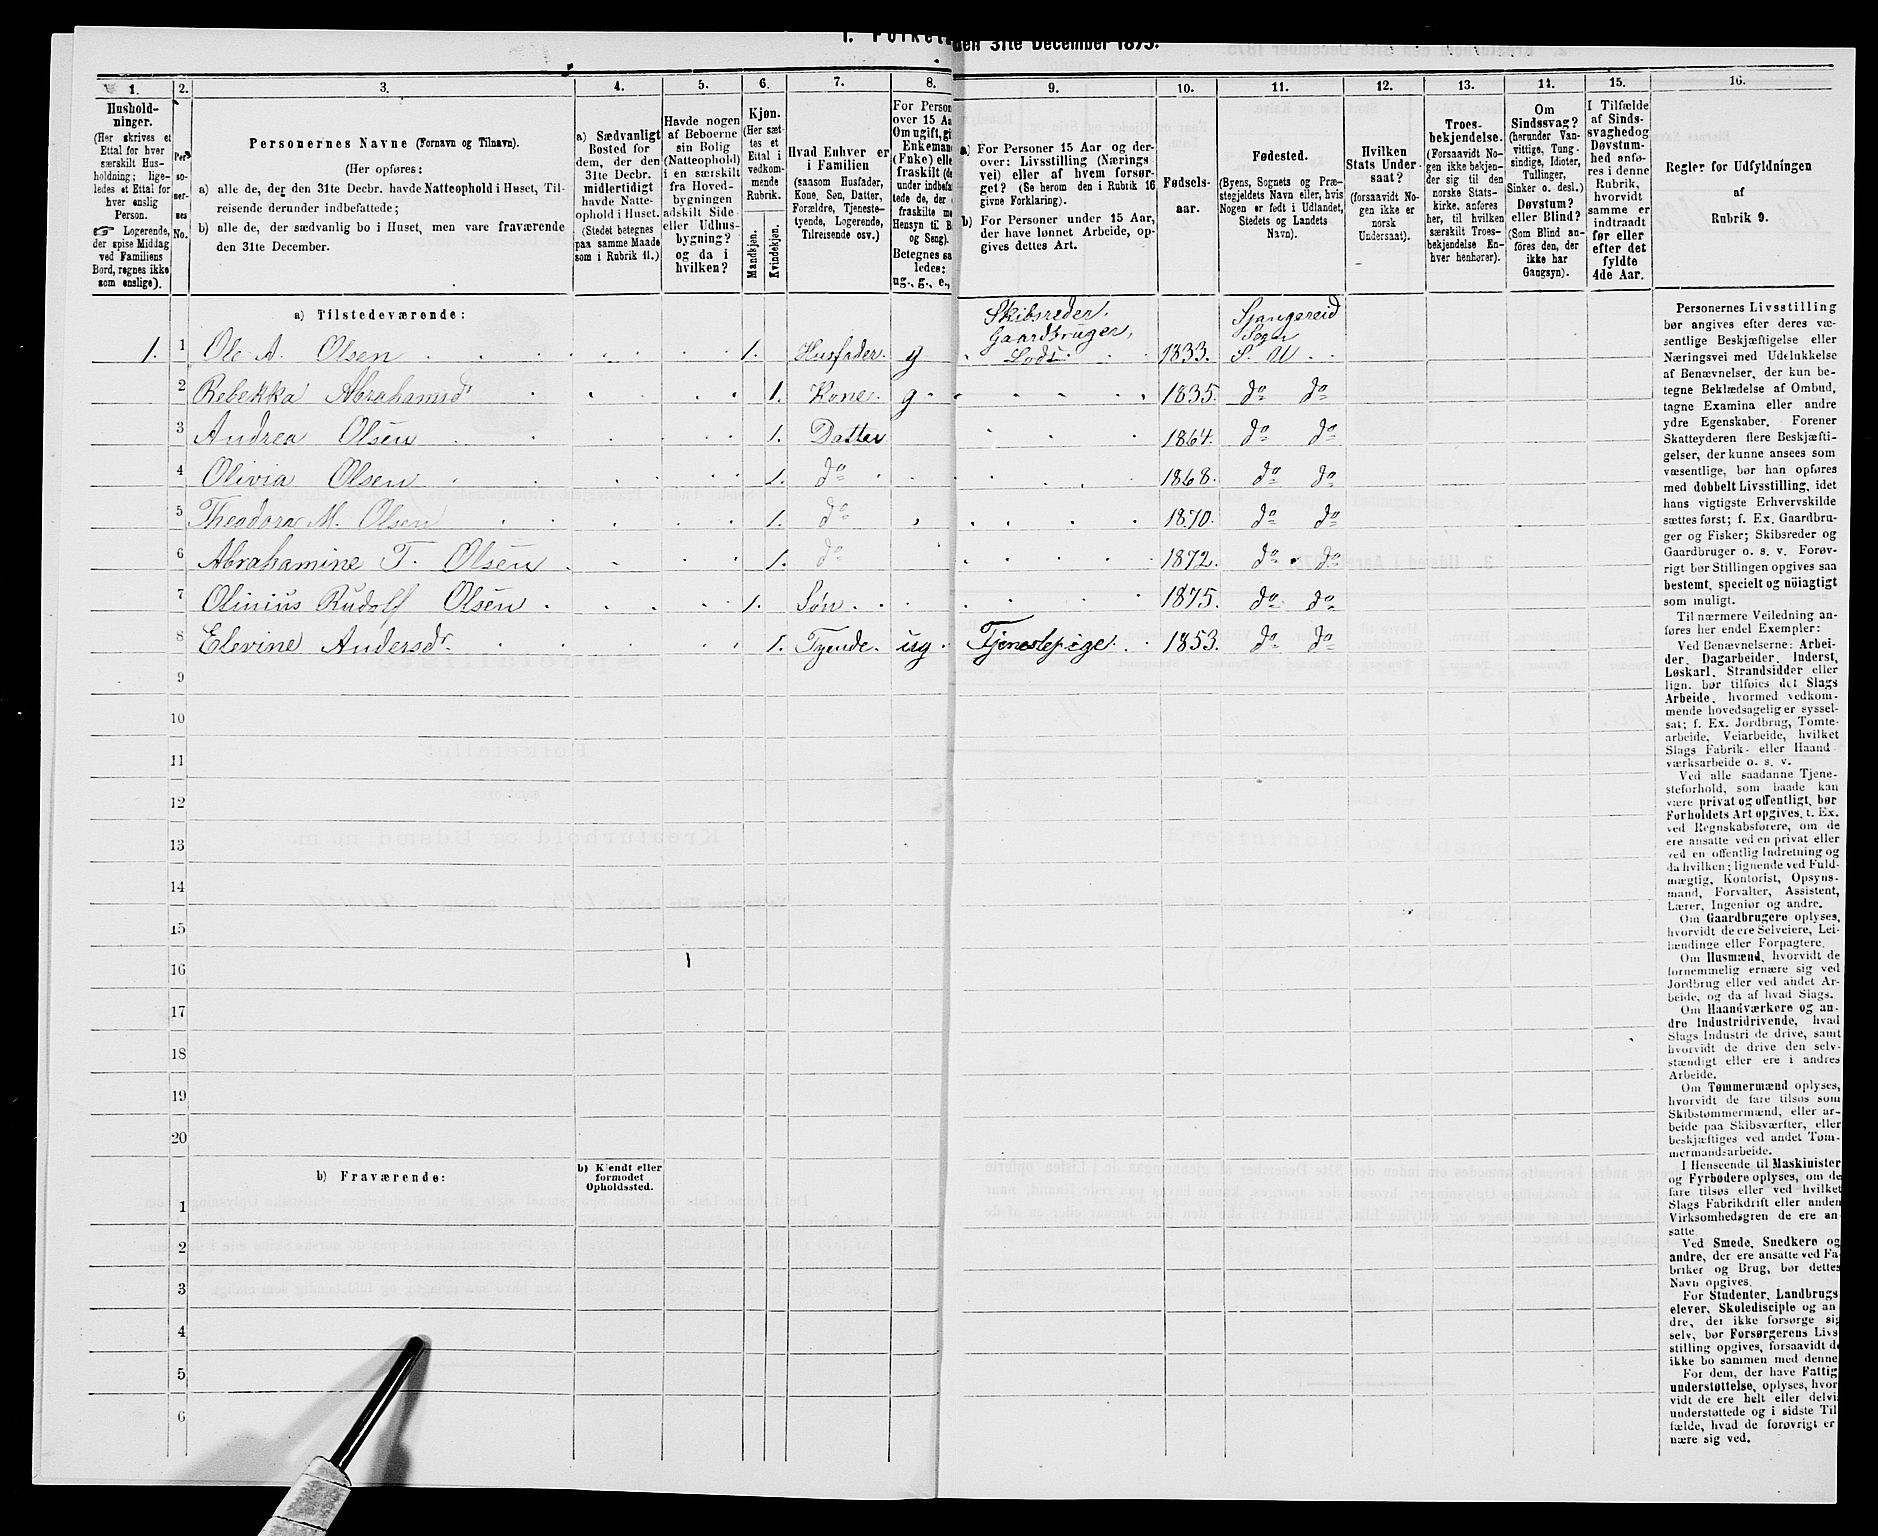 1. Folket den 31te December 1875.
1. 2. 3. 4. 5. 6. 7. 8. 9. 10. 11. 12. 13. 14. 15. 16.
Hushold-
ninger.
(Her skrives et
Ettal for hver
særskilt Hus-
holdning; lige-
ledes et Ettal for
hver enslig
Person.
☞ Logerende,
der spise Middag
ved Familiens
Bord, regnes ikke
som enslige).
Per-
so-
ner-
nes
No.
Personernes Navne (Fornavn og Tilnavn).
(Her opføres:
a) alle de, der den 31te Decbr. havde Natteophold i Huset, Til-
reisende derunder indbefattede;
b) alle de, der sædvanlig bo i Huset, men vare fraværende
den 31te December.
a) Sædvanligt
Bosted for
dem, der den
31te Decbr.
midlertidigt
havde Natte-
ophold i Huset.
(Stedet betegnes
paa samme Maade
som i Rubrik 11.)
Havde nogen
af Beboerne
sin Bolig
(Natteophold)
i en særskilt
fra Hoved-
bygningen
adskilt Side-
eller Udhus-
bygning?
og da i
hvilken?
Kjøn.
(Her sæt-
tes et
Ettal i
vedkom-
mende
Rubrik.
Mandkjøn.
Kvindekjøn.
Hvad Enhver er
i Familien
(saasom Husfader,
Kone, Søn, Datter,
Forældre, Tjeneste-
tyende, Logerende,
Tilreisende osv.)
For Person
over 15 Aa
Om ugift, gi
Enkeman
(Enke) elle
fraskilt (de
under indbefat
tede de, der
fraskilte m
Hensyn til B
og Seng).
Betegnes saa
ledes:
ug., g., e.,
a) For Personer 15 Aar og der-
over: Livsstilling (Nærings
vei) eller af hvem forsør-
get? (Se herom den i Rubrik 16
givne Forklaring).
b) For Personer under 15 Aar,
der have lønnet Arbeide, op-
gives dettes Art.
Fødsels-
aar.
Fødested.
(Byens, Sognets og Præ-
stegjeldets Navn eller, hvis
Nogen er født i Udlandet,
Stedets og Landets
Navn).
Hvilken
Stats Under-
saat?
(forsaavidt No-
gen ikke er
norsk
Undersaat).
Troes-
bekjendelse.
(Forsaavidt No-
gen ikke bekjen-
der sig til den
norske Stats-
kirke, anføres
her, til hvilken
særskilt Troes-
bekjendelse En-
hver henhører).
Om
Sindssvag?
(herunder Van-
vittige, Tung-
sindige, Idioter,
Tullinger,
Sinker o. desl.)
Døvstum?
eller Blind?
(Som Blind an-
føres den, der
ikke har
Gangsyn).
I Tilfælde
af Sinds-
svaghed og
Døvstum-
hed anfø-
res i denne
Rubrik,
hvorvidt
samme er
indtraadt
før eller
efter det
fyldte
4de Aar.
Regler for Udfyldningen
af
Rubrik 9.
a) Tilstedeværende:
Skibsreder,
Gaardbruger,
Spangereid
Sogn
1. 1 Ole A. Olsen 1. Husfader g Lods 1833. S. U
2 Rebekka Abrahamsdr 1. Kone g 1835. do do
3 Andrea Olsen 1. Datter 1864. do do
4 Olivia Olsen 1. do 1868. do do
5 Theodora M. Olsen 1. do 1870. do do
6 Abrahamine T. Olsen 1. do 1872. do do
7 Olinius Rudolf Olsen 1. Søn 1875. do do
8 Elevine Andersdr 1. Tyende ug Tjenestepige 1853. do do
9
10
11
12
13
14
15
16
17
18
19
20
b) Fraværende:
b) Kjendt eller
formodet
Opholdssted.
1
2
3
4
5
6
Personernes Livsstilling
bør angives efter deres væ-
sentlige Beskjæftigelse eller
Næringsvei med Udelukkelse
af Benævnelser, der kun be-
tegne Beklædelse af Ombud,
tagne Examina eller andre
ydre Egenskaber. Forener
Skatteyderen flere Beskjæfti-
gelser, der kunne ansees som
væsentlige, bør han opføres
med dobbelt Livsstilling, idet
hans vigtigste Erhvervskilde
sættes først; f. Ex. Gaardbru-
ger og Fisker; Skibsreder og
Gaardbruger o. s. v. Forøv-
rigt bør Stillingen opgives saa
bestemt, specielt og nöiagtigt
som muligt.
Til nærmere Veiledning an-
føres her endel Exempler:
Ved Benævnelserne: Arbei-
der, Dagarbeider, Inderst,
Løskarl, Strandsidder eller
lign. bør tilføies det Slags
Arbeide, hvormed vedkom-
mende hovedsagelig er syssel-
sat; f. Ex. Jordbrug, Tomte-
arbeide, Veiarbeide, hvilket
Slags Fabrik- eller Haand-
værksarbeide o. s. v.
Ved alle saadanne Tjene-
steforhold, som baade kan
være privat og offentligt, bør
Forholdets Art opgives, t. Ex.
ved Regnskabsførere, om de
ere ansatte ved en privat eller
ved en offentlig Indretning og
da hvilken; lignende ved Fuld-
mægtig, Kontorist, Opsyns-
mand, Forvalter, Assistent,
Lærer, Ingeniør og andre.
Om Gaardbrugere oplyses,
hvorvidt de ere Selveiere, Lei-
lændinge eller Forpagtere.
Om Husmænd, hvorvidt de
fornemmelig ernære sig ved
Jordbrug eller ved andet Ar-
beide, og da af hvad Slags.
Om Haandværkere og an-
dre Industridrivende, hvad
Slags Industri de drive, samt
hvorvidt de drive den selv-
stændigt eller ere i andres
Arbeide.
Om Tømmermænd oplyses,
hvorvidt de fare tilsøs som
Skibstømmermænd, eller ar-
beide paa Skibsværfter, eller
beskjæftiges ved andet Tøm-
mermandsarbeide.
I Henseende til Maskinister
og Fyrbødere oplyses, om de
fare tilsøs eller ved hvilket
Slags Fabrikdrift eller anden
Virksomhedsgren de ere an-
satte.
Ved Smede, Snedkere og
andre, der ere ansatte ved Fa-
briker og Brug, bør dettes
Navn opgives.
For Studenter, Landbrugs
elever, Skoledisciple og an
dre, der ikke forsørge sig
selv, bør Forsørgerens Livs
stilling opgives, forsaavidt de
ikke bo sammen med denne
For dem, der have Fattig
understøttelse, oplyses, hvor
vidt de ere helt eller delvis
understøttede og i sidste Til
fælde, hvad de forøvrigt er
nære sig ved.